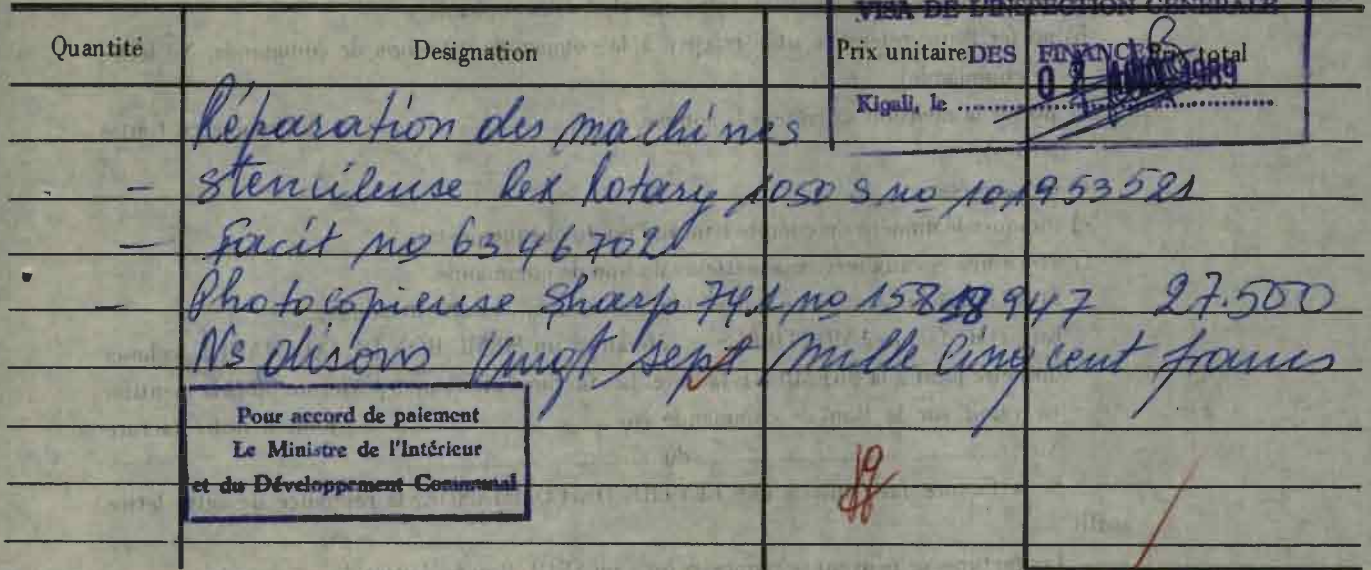 VISA DE L'INSPECTION GENERALE
Quantité Designation Prix unitaire DES FINANCES Prix total
Kigali, le 1989
Réparation des machines
- Stencileuse Rex Rotary 1050 S no 101953521
- Facit no 6346702
- Photocopieuse Sharp 741 no 15818947 27.500
Ns disons Vingt sept mille cinq cent francs
Pour accord de paiement
Le Ministre de l'Intérieur
et du Développement Communal